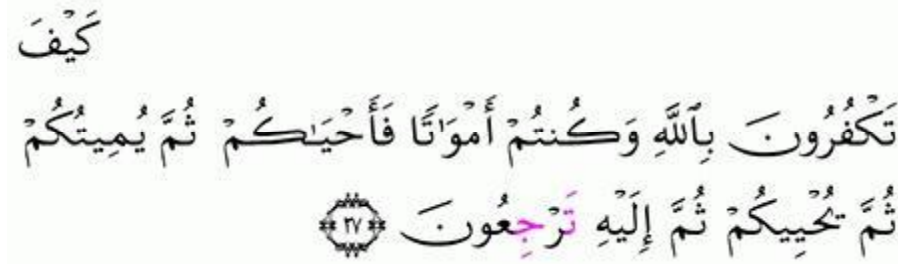 كَيْفَ
تَكْفُرُونَ بِٱللَّهِ وَكُنتُمْ أَمْوَٰتًا فَأَحْيَـٰكُمْ ثُمَّ يُمِيتُكُمْ
ثُمَّ يُحْيِيكُمْ ثُمَّ إِلَيْهِ تَرْجِعُونَ ٢٧